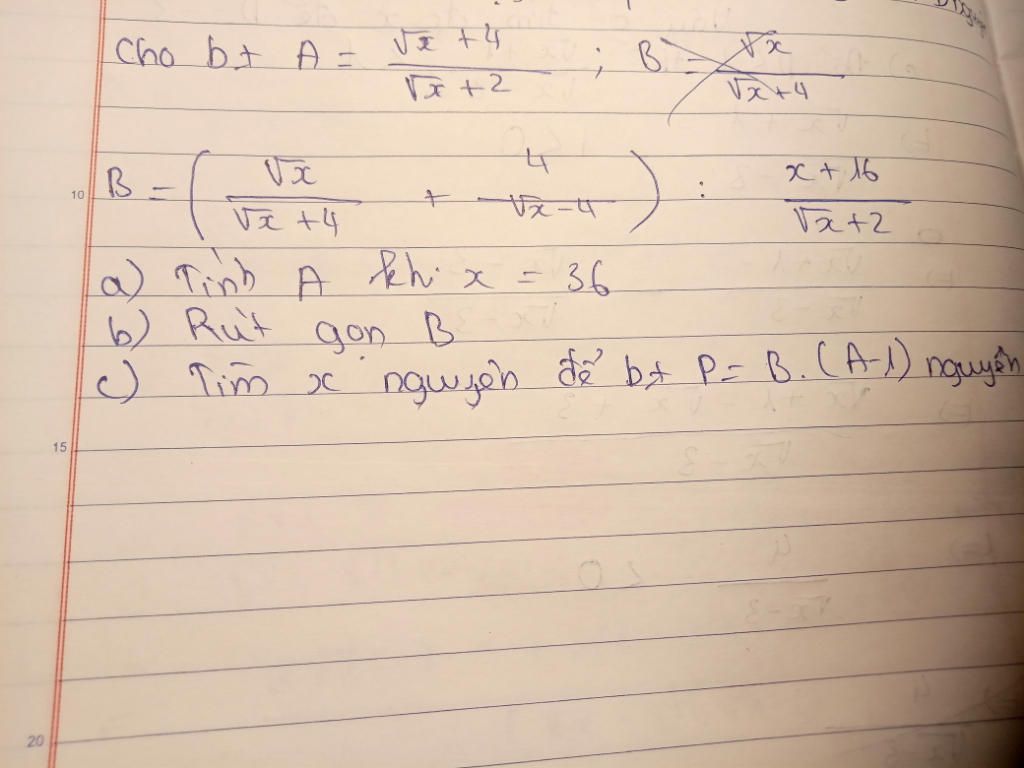 Cho bt A = (√x + 4)/(√x + 2) ; B = √x/(√x + 4)
10 B = (√x/(√x + 4) + 4/(√x - 4)) : (x + 16)/(√x + 2)
a) Tính A khi x = 36
b) Rút gọn B
c) Tìm x nguyên để bt P = B.(A-1) nguyên
15
20